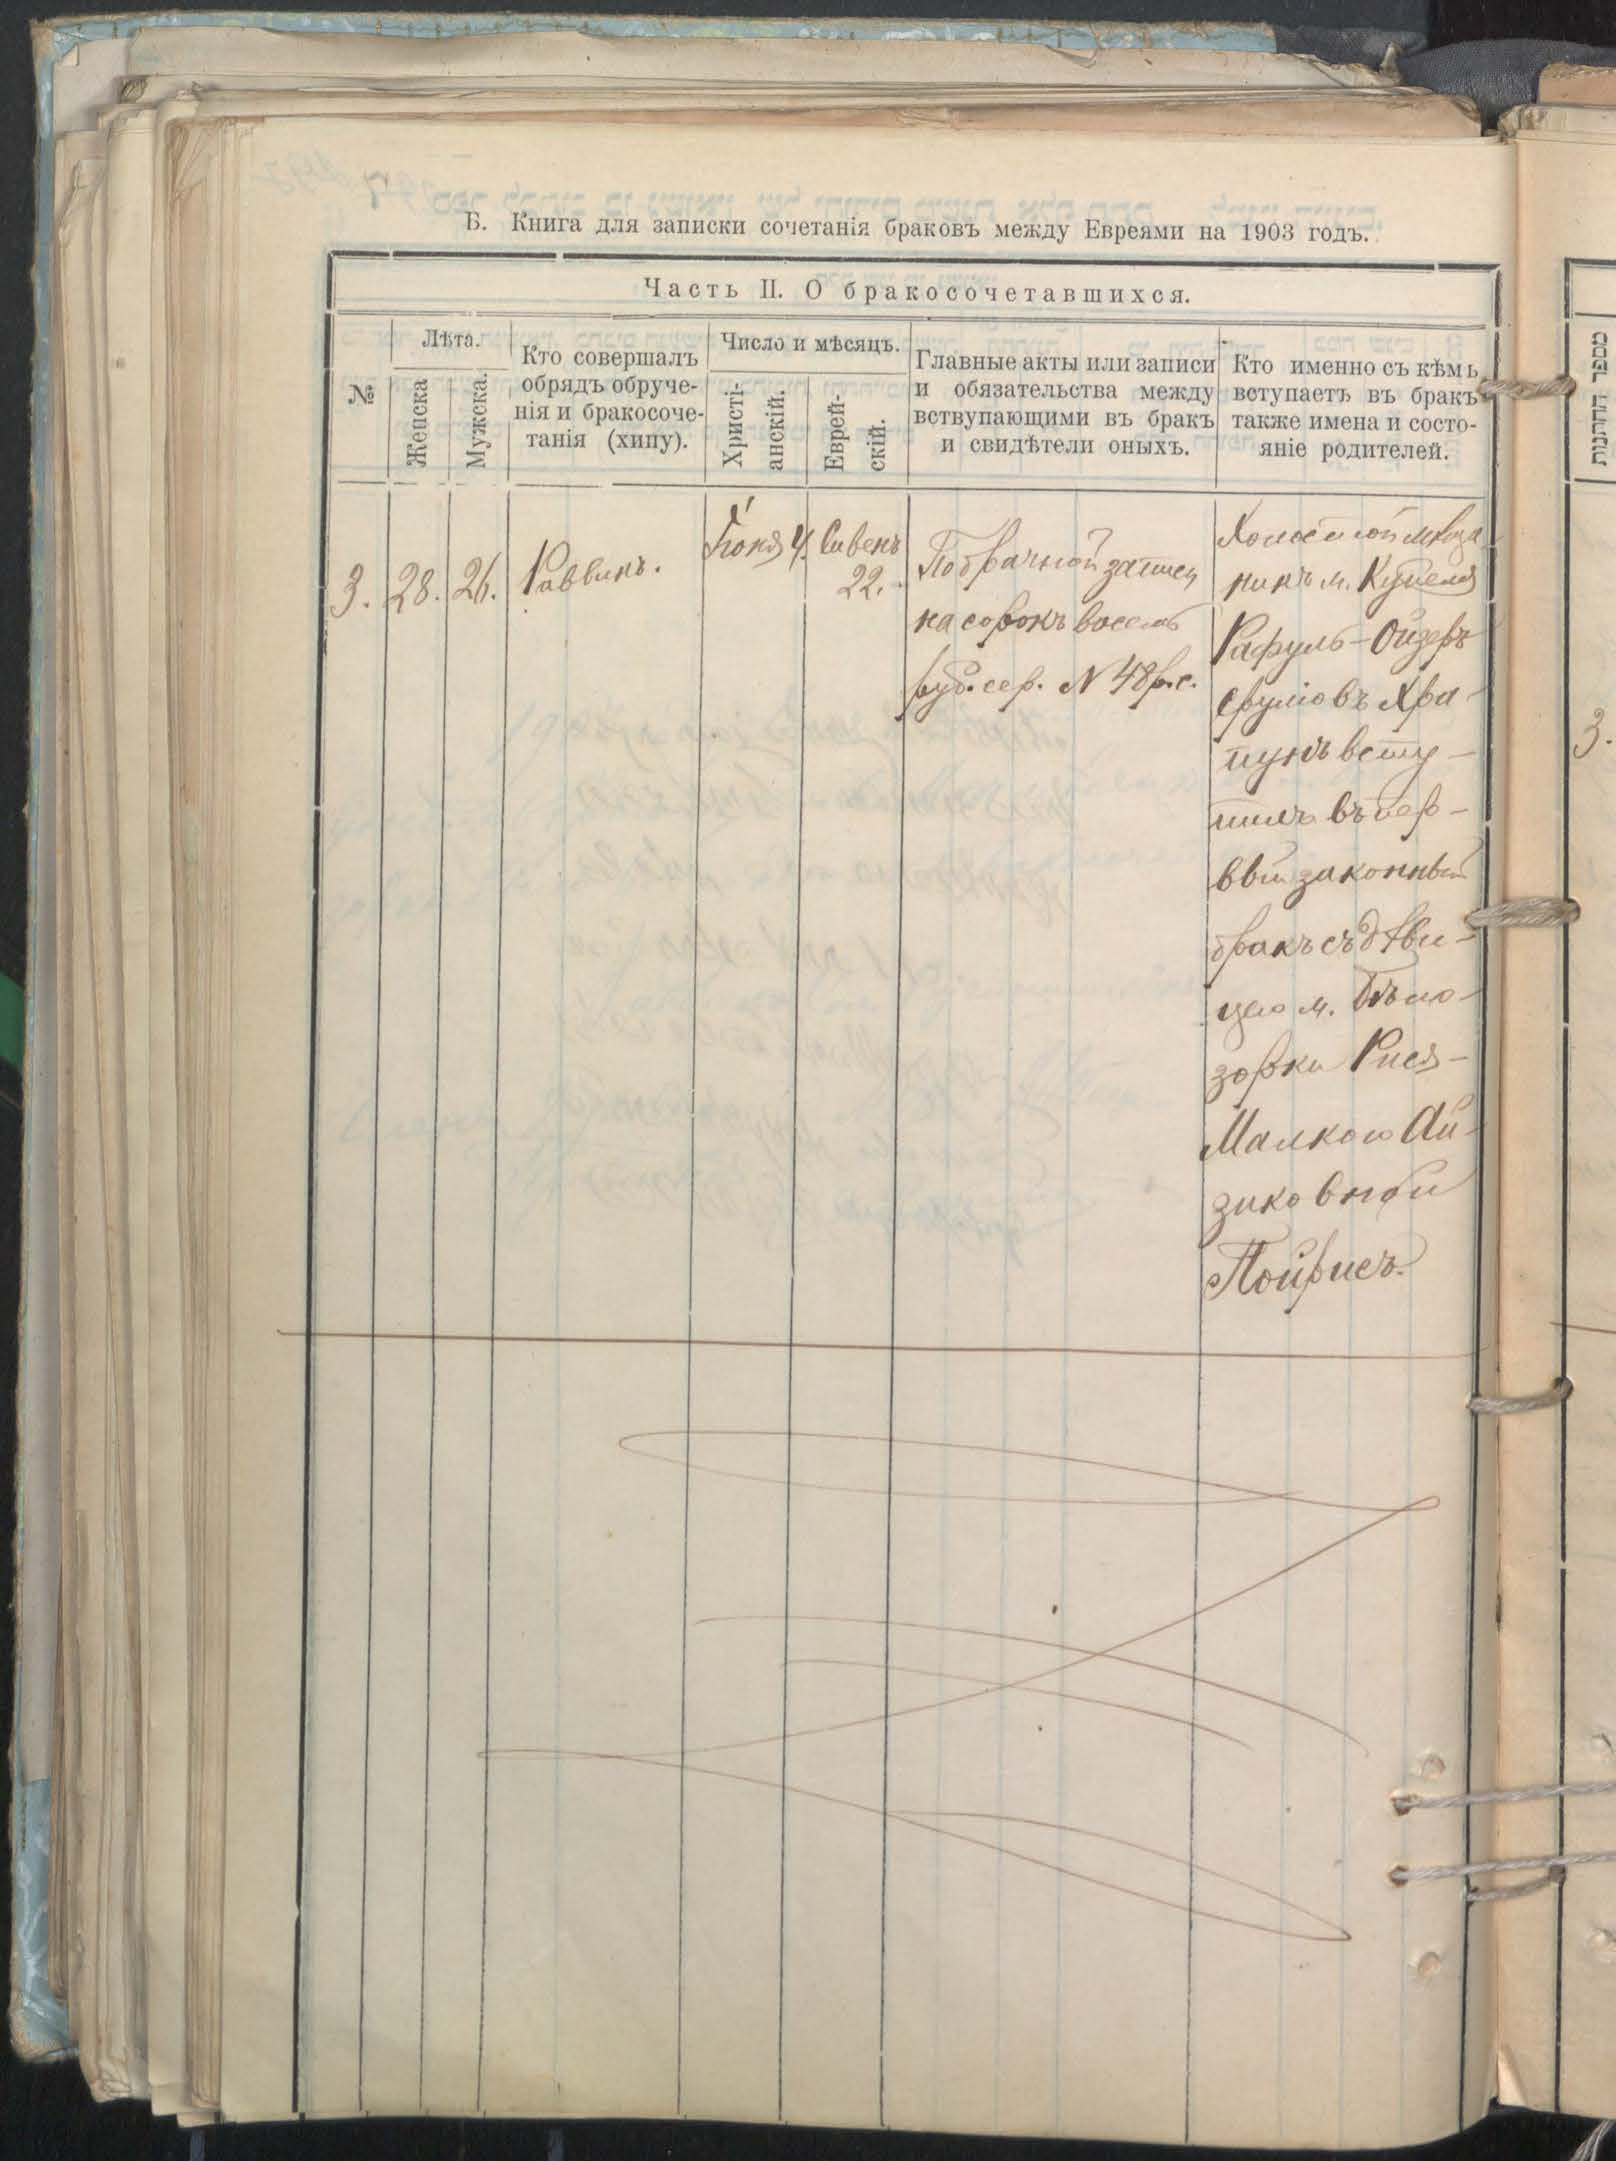 Б. Книга для записки сочетанія браковъ между Евреями на 1903 годъ.
Часть II. О бракосочетавшихся.
№
Лѣта.
Женска
Мужска.
Кто совершалъ
обрядъ обруче-
нія и бракосоче-
танія (хипу).
Число и мѣсяцъ.
Христі-
анскій.
Еврей-
скій.
Главные акты или записи
и обязательства между
вствупающими въ бракъ
и свидѣтели оныхъ.
Кто именно съ кѣмъ
вступаетъ въ бракъ
также имена и состо-
яніе родителей.
3.
28.
26.
Раввинъ.
Іюня 4.
Сивенъ
22.
По брачной записи
на сорокъ восемь
руб. сер. N 48 р. с.
Холостой мѣща
никъ м. Купеля
Рафуль-Ойзеръ
Сруліовъ Хра-
пунъ всту-
пилъ въ пер-
вый законный
бракъ съ дѣви-
цею м. Бѣло-
зорки Рися-
Малкою Ай-
зиковной
Пойрисъ.
מספר החתנות
3.